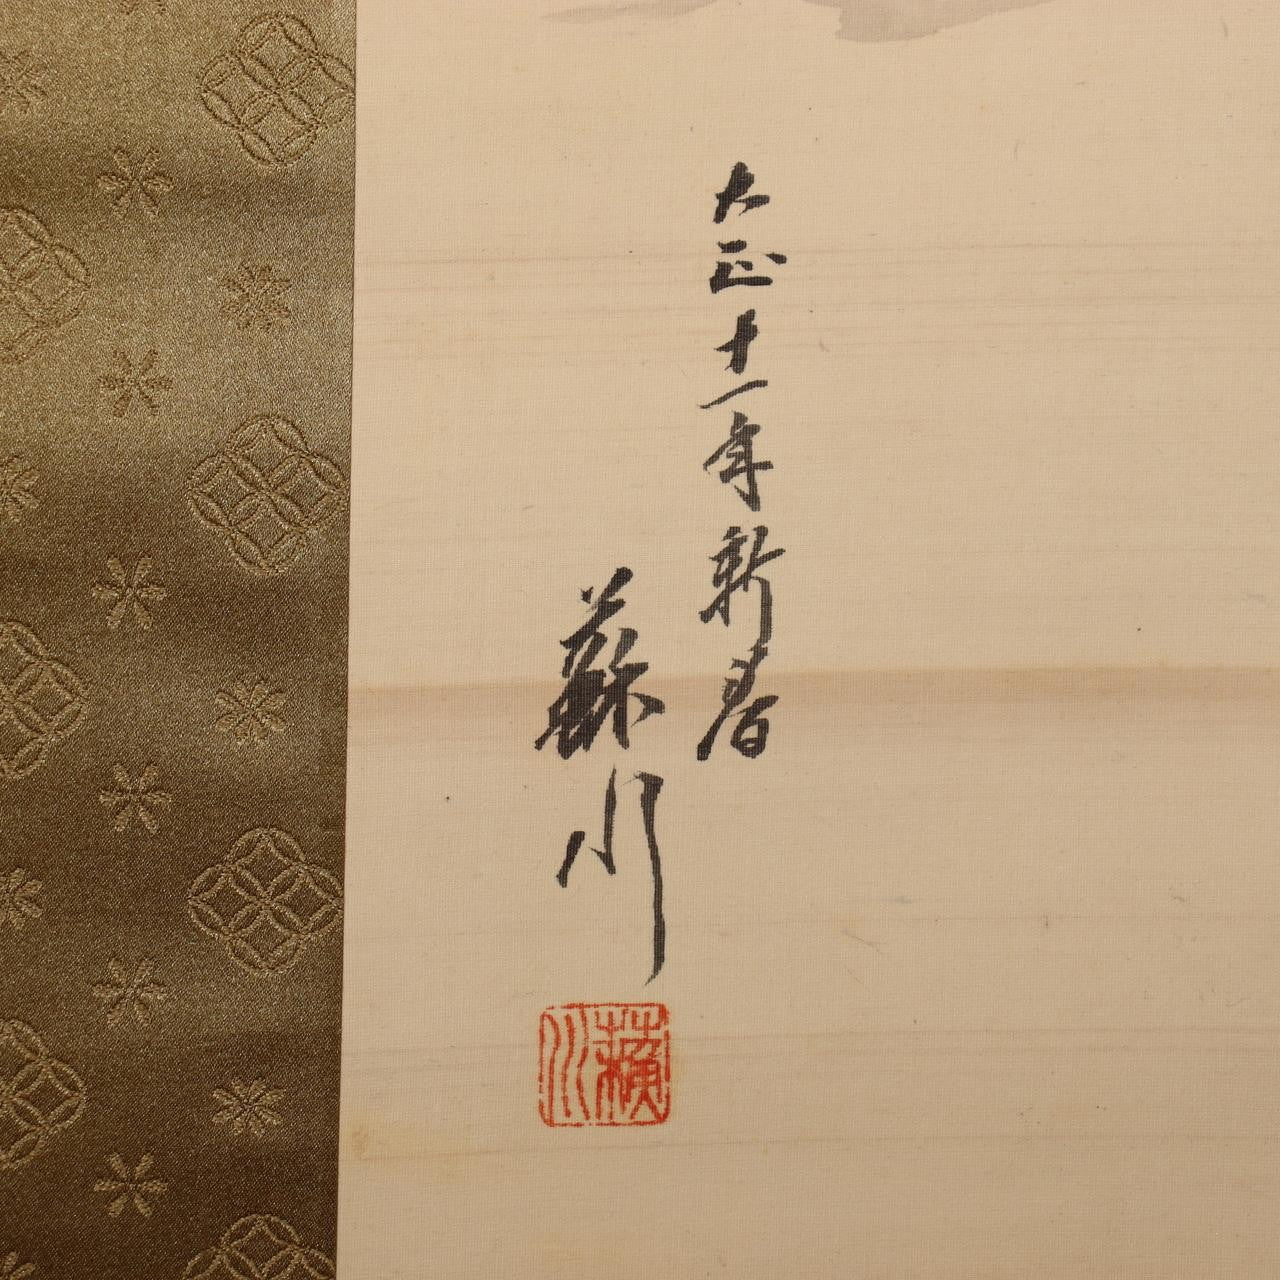 大正十一年新春
蘇川
蘇川